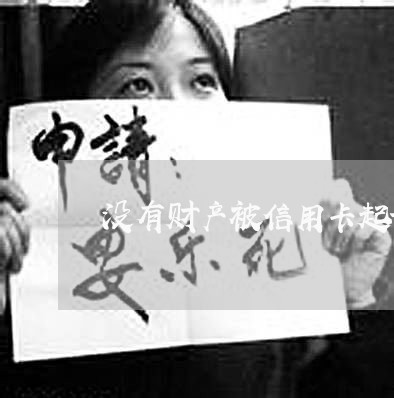 申請：
没有财产被信用卡起
安乐死